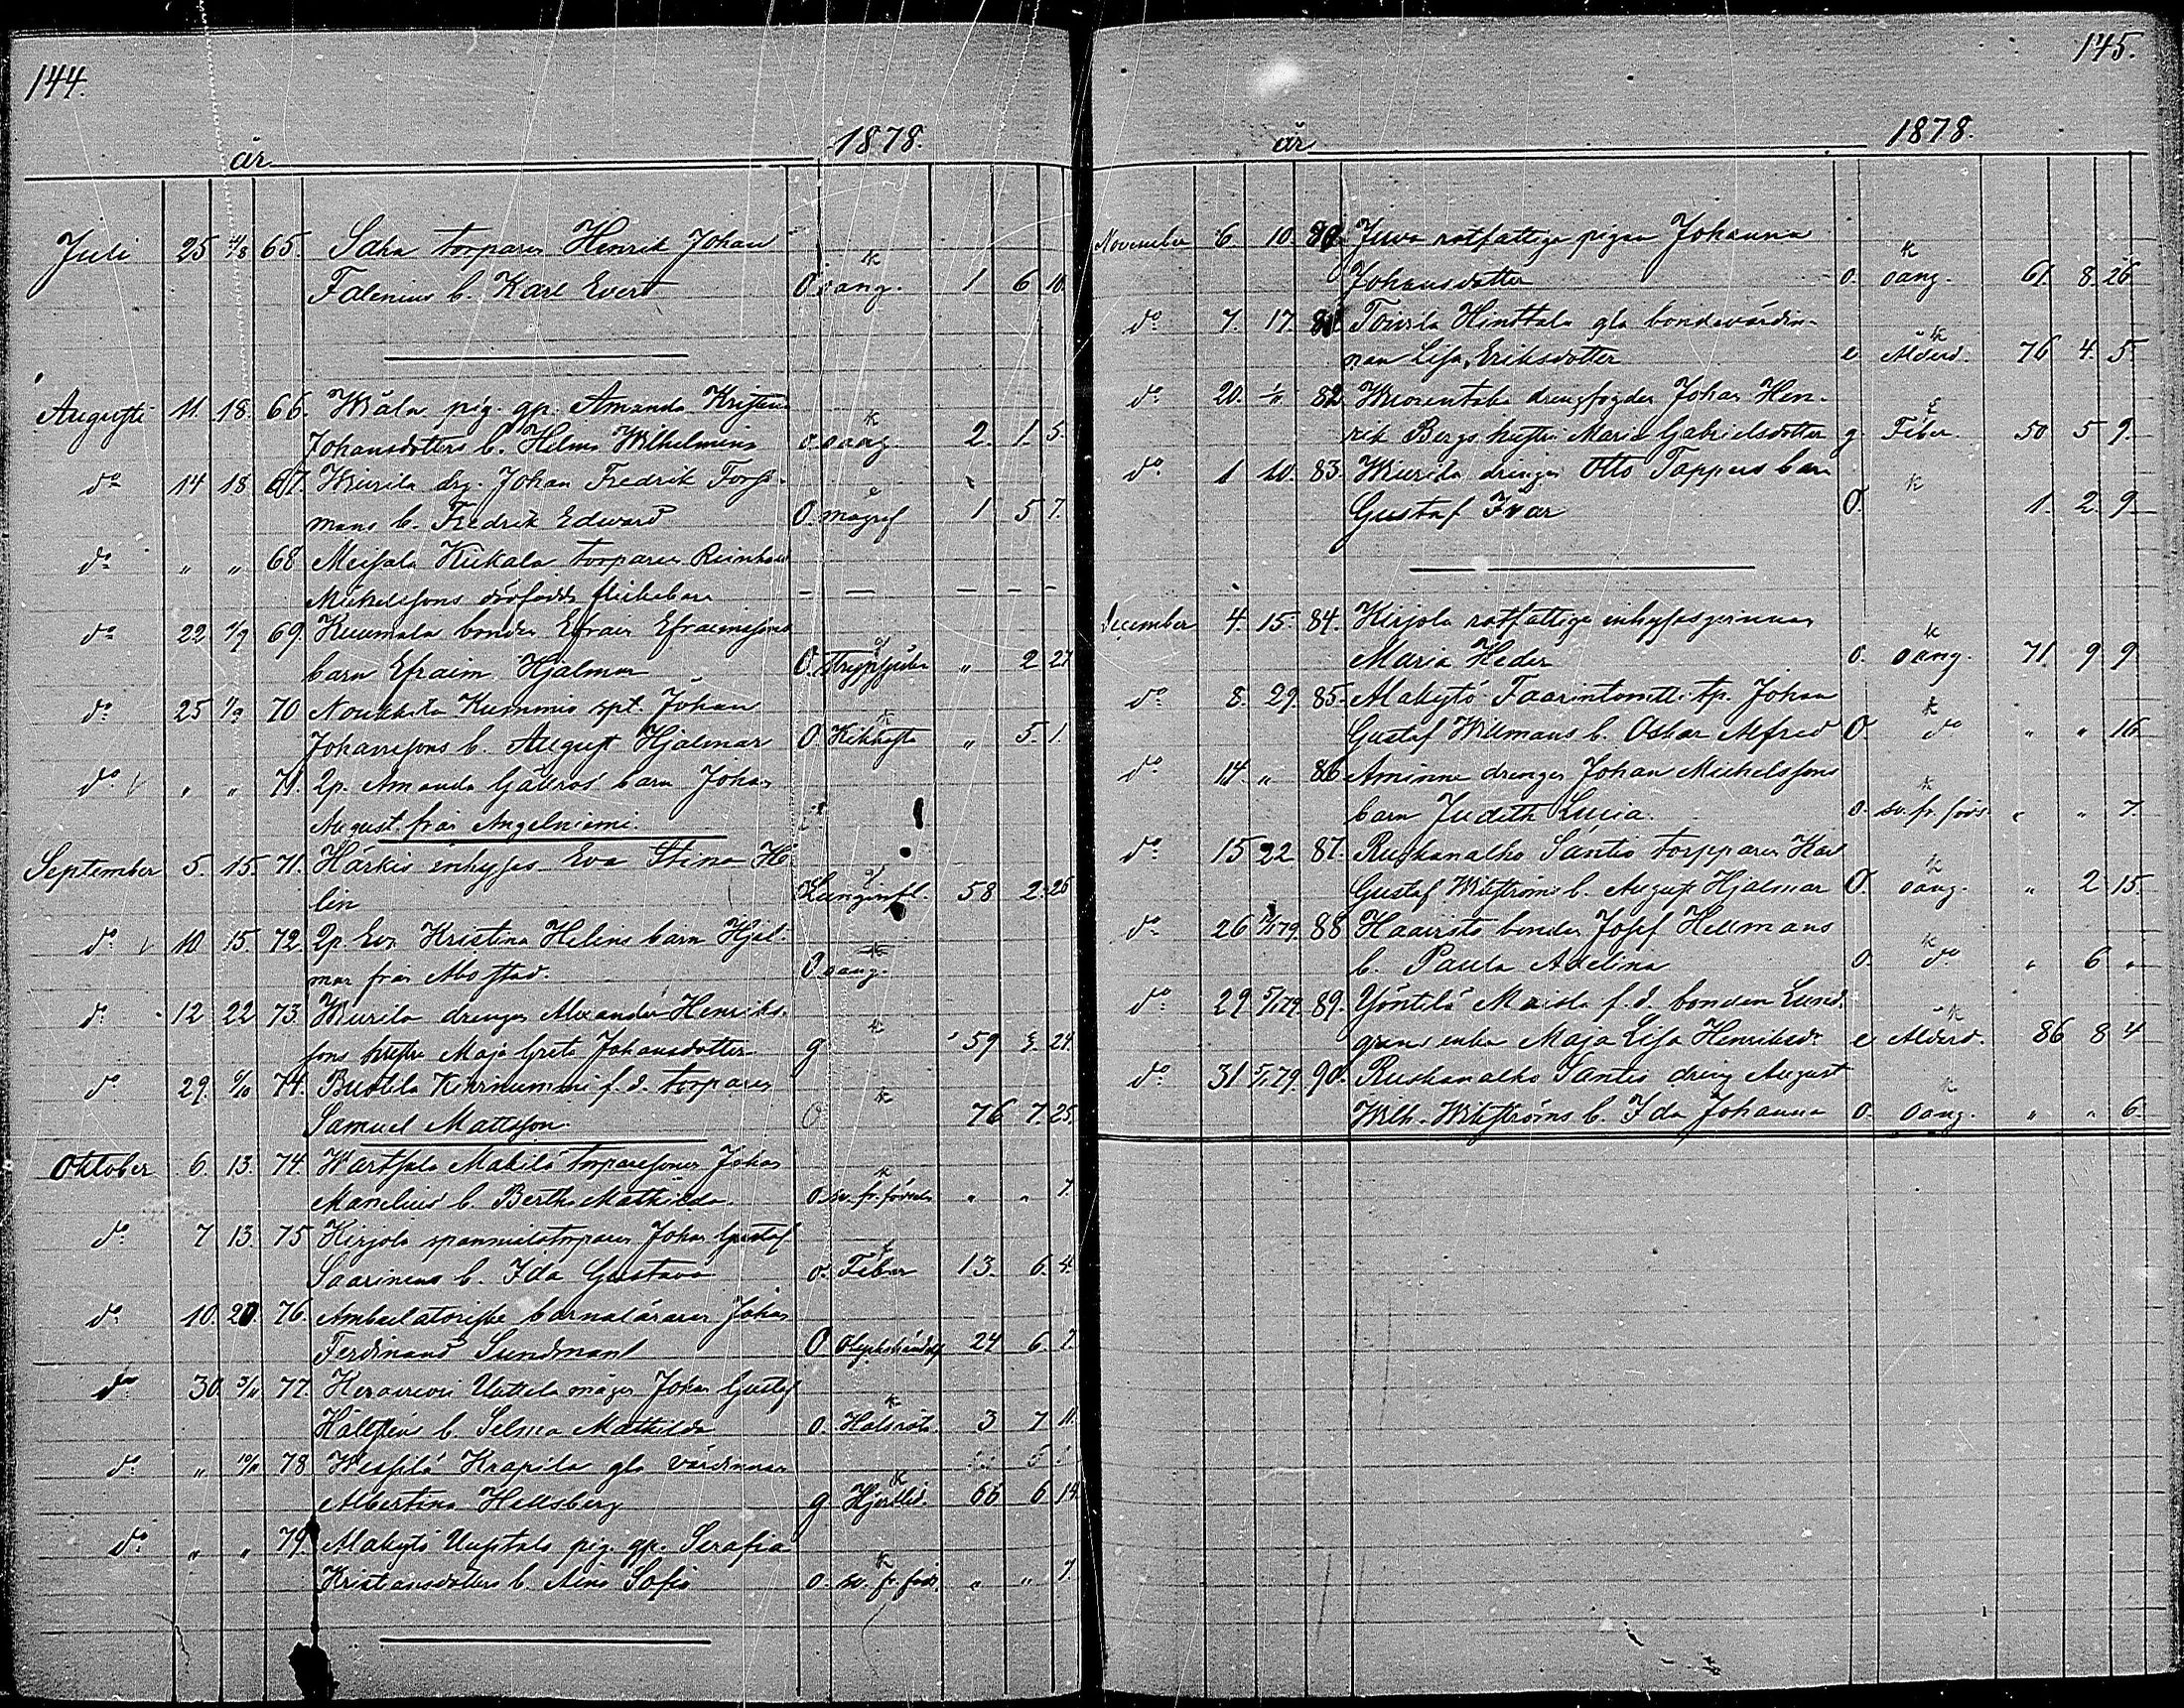 144.
år 1878.
Juli 25 4/8 65. Saha torparen Henrik Johan
Falenius b. Karl Evert O. oang. k 1 6 10
Augusti 11. 18. 66. Wåla pig. gp. Amanda
Johansdotters b. Helma Wilhelmina o. oang. k 2. 1. 5.
do 14 18. 67. Wiurila drg. Johan Fredrik Forss-
mans b. Fredrik Edward O. magref 1 5 7.
do " " 68 Meisala Kiikala torparen Reinhold
Mickelssons dödfödda flickebarn – – – – –
do 22. 1/9 69. Kuumala bonden Efraim Efraimssons
barn Efraim Hjalmar O. " 2 27
do 25 1/9 70 Kummio spt. Johan
Johanssons b. August Hjalmar O. Kikhosta k " 5. 1.
do " " 71. 2p. Amanda barn Johan
August från Angelniemi.
September 5. 15. 71. Härkis inhyses Eva Stina He
lin Lunginfl. 58 2. 26
do 10 15. 72. 2p Eva Kristina Helins barn Hjal-
mar från Åbo stad. O oang.
do 12 22 73. Wiurila drengen Alexander Henriks-
sons hustru Maja Greta Johansdotter g k 59 24.
do 29. 6/10 74. Kirinummi f. d. torparen
Samuel Mattsson. O k 76 7. 25.
Oktober 6. 13. 74. Wartsala Makilä torparesonen Johan
Manelius b. Bertha Mathilda o. sv. fr. födseln k " " 7.
do 7 13. 75 Kirjola torparen Johan Gustaf
Saarinens b. Ida Gustava o. Feber 13. 6. 4.
do 10. 20. 76. Ambulatoriske barnaläraren Johan
Ferdinand Sundman O Olyckshändelse 24 6.
do 30. 3/11 77. mågen Johan Gustaf
b. Selma Mathilda o. Halsröta k 3 7 11.
do " 10/11 78 Krapila gla värdinnan
Albertina Hellsberg g Hjertlid. k 66 6 14.
do " " 79. pig. gp. Serafia
Kristiansdotters b. Aina Sofia o. sv. fr. föds. k " " 7.
145.
år 1878.
November 6. 10. 80. Juva rotfattiga pigan Johanna
Johansdotter o. oang. k 61. 8. 26
do 7. 17. 81. Toivila Hinttala gla bondevärdin-
nan Lisa Eriksdotter e Ålderd. k 76 4. 5.
do 20. 82. drengfogden Johan Hen-
rik Bergs hustru Maria Gabrielsdotter g. Feber 50 5 9.
do 1 10. 83. Wiurila drengen Otto Tappers barn
Gustaf Ivar O. k 1. 2. 9
December 4. 15. 84. Kirjola rotfattiga inhyseqvinnan
Maria Heder o. oang. k 71. 9 9
do 8. 29. 85. tp. Johan
Gustaf Wilmans b. Oskar Alfred O. do k " " 16
do 14 " 86 Aminne drengen Johan Michelssons
barn Judith Lucia. o. sv. fr. föds. k " " 7.
do 15 22 87. Ruskanalho Säntis torpparen Karl
Gustaf Wikströms b. August Hjalmar O. oang. k " 2 15.
do 26 88 Haaristo bonden Josef Hellmans
b. Paula Adelina o. do k " 6 "
do 29 5/1 79. 89. Yöntilä Maisla f. d. bonden Lund-
grens enka Maja Lisa Henriksdr e. Ålderd. k 86 8 4
do 31 5/1 79. 90. Ruskanalho Säntis dreng August
Wilh. Wikströms b. Ida Johanna o. oang. k " " 6.